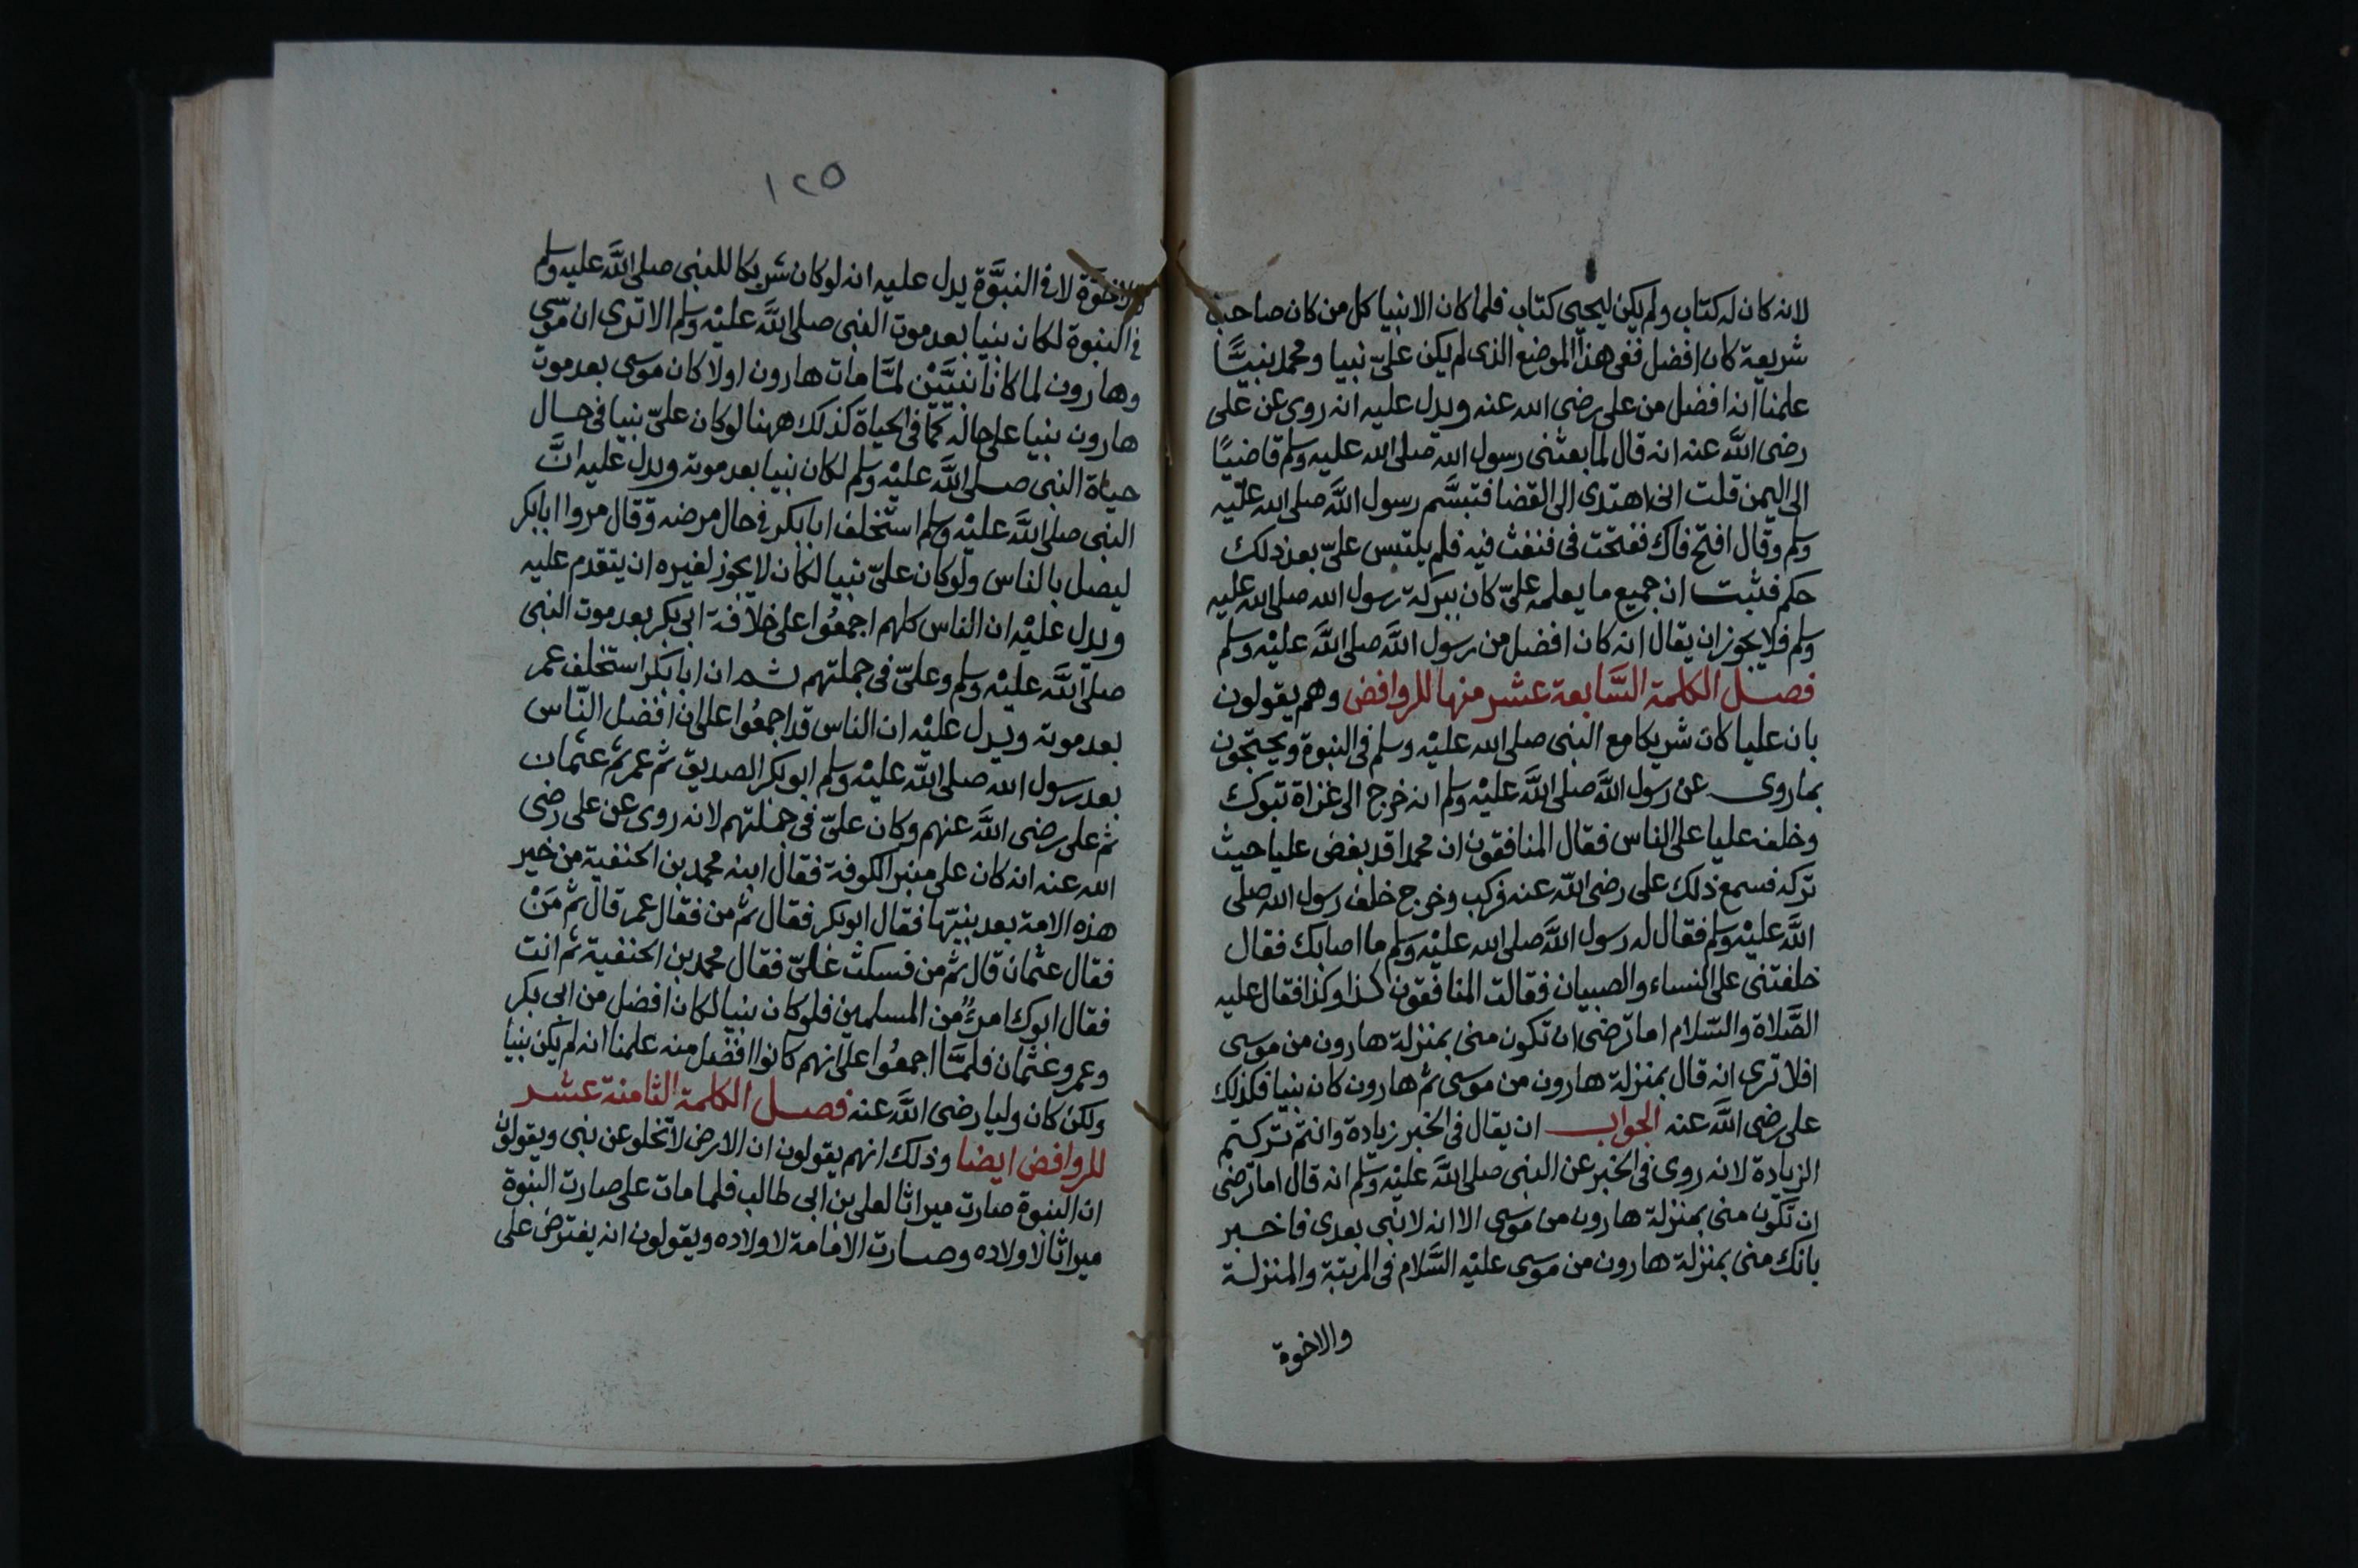 لانه كان له كتاب ولم يكن ليحيى كتاب فلما كان الانبيا كل من كان صاحب
شريعة كان افضل ففى هذا الموضع الذى لم يكن علىّ نبيا ومحمد نبيًّا
علمنا انه افضل من على رضى الله عنه ويدل عليه انه روى عن على
رضى اللَّه عنه انه قال لما بعثنى رسول الله صلى الله عليه وسلم قاضيًا
الى اليمن قلت انى اهتدى الى القضا فتبسَّم رسول اللَّه صلى الله عليه
وسلم وقال افتح فاك ففتحت فى فنفث فيه فلم يلتبس علىّ بعد ذلك
حكم فثبت ان جميع ما يعلمه علىّ كان ببركة رسول الله صلى الله عليه
وسلم فلا يجوز ان يقال انه كان افضل من رسول اللَّه صلى اللَّه عليْه وسلم
فصل الكلمة السَّابعة عشر منها للروافض وهم يقولون
بان عليا كان شريكا مع النبى صلى الله عليْه وسلم فى النبوة ويحتجون
بما روى عن رسول اللَّه صلى اللَّه عليْه وسلم انه خرج الى غزاة تبوك
وخلف عليا على الناس فقال المنافقون ان محمدا قد بغض عليا حيث
تركه فسمع ذلك على رضى اللّه عنه فركب وخرج خلف رسول الله صلى
اللَّه عليْه وسلم فقال له رسول اللَّه صلى الله عليْه وسلم ما اصابك فقال
خلفتنى على النساء والصبيان فقالت المنافقون كذا وكذا فقال عليه
الصَّلاة والسّلام اما ترضى ان تكون منى بمنزلة هارون من موسى
افلا ترى انه قال بمنزلة هارون من موسى ثم هارون كان نبيا فكذلك
على رضى اللَّه عنه الجواب ان يقال فى الخبر زيادة وانتم تركتم
الزيادة لانه روى فى الخبر عن النبى صلى اللَّه عليْه وسلم انه قال اما ترضى
ان تكون منى بمنزلة هارون من موسى الا انه لا نبى بعدى فاخبر
بانك منى بمنزلة هارون من موسى عليْه السَّلام فى المرتبة والمنزلة
والاخوة
١٢٥
والاخوَّة لا فى النبوَّة يدل عليه انه لو كان شريكا للنبى صلى اللَّه عليه وسلم
فى النبوة لكان نبيا بعد موت النبى صلى اللَّه عليْه وسلم الا ترى ان موسى
وهارون لما كانا نبيَّيْن لمَّا مات هارون اولا كان موسى بعد موت
هارون نبيا على حاله كما فى الحياة كذلك ههنا لو كان علىّ نبيا فى حال
حياة النبى صلى اللَّه عليْه وسلم لكان نبيا بعد موته ويدل عليه انَّ
النبى صلى اللَّه عليْه وسلم استخلف ابا بكر فى حال مرضه وقال مروا ابا بكر
ليصل بالناس ولو كان علىّ نبيا لكان لا يجوز لغيره ان يتقدم عليه
ويدل عليْه ان الناس كلهم اجمعُوا على خلافة ابى بكر بعد موت النبى
صلى اللَّه عليْه وسلم وعلىّ فى جملتهم ثم ان ابا بكر استخلف عمر
بعد موته ويدل عليْه ان الناس قد اجمعُوا على ان افضل النّاس
بعد رسول الله صلى اللّه عليْه وسلم ابو بكر الصديق ثم عمر ثم عثمان
ثم على رضى اللَّه عنهم وكان علىّ فى جملتهم لانه روى عن على رضى
الله عنه انه كان على منبر الكوفة فقال ابنه محمد بن الحنفية من خير
هذه الامة بعد نبيّها فقال ابو بكر فقال ثم من فقال عمر قال ثم مَنْ
فقال عثمان قال ثم من فسكت علىّ فقال محمد بن الحنفية ثم انت
فقال ابوك امرءٌ من المسلمين فلو كان نبيا لكان افضل من ابى بكر
وعمر وعثمان فلمَّا اجمعُوا على انهم كانوا افضل منه علمنا انه لم يكن نبيا
ولكن كان وليا رضى اللَّه عنه فصل الكلمة الثامنة عشر
للروافض ايضا وذلك انهم يقولون ان الارض لا تخلو عن نبى ويقولون
ان النبوة صارت ميراثا لعلى بن ابى طالب فلما مات على صارت النبوة
ميراثا لاولاده وصارت الامامة لاولاده ويقولون انه يفترض على